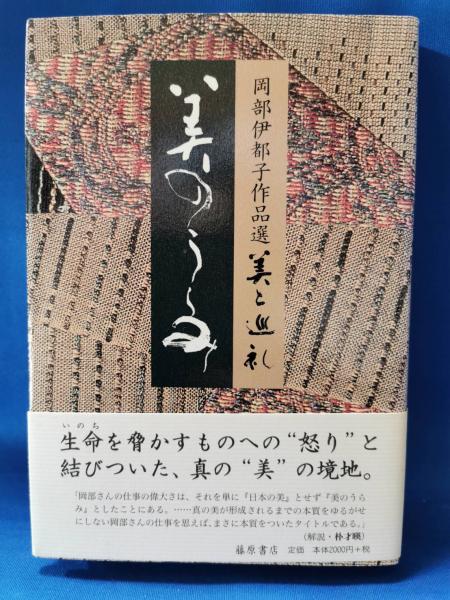 岡部伊都子作品選
美と巡礼
美のうらみ
いのち
生命を脅かすものへの“怒り”と
結びついた、真の“美”の境地。
「岡部さんの仕事の偉大さは、それを単に『日本の美』とせず『美のうら
み』としたことにある。……真の美が形成されるまでの本質をゆるがせ
にしない岡部さんの仕事を思えば、まさに本質をついたタイトルである。」
(解説・朴才暎)
藤原書店 定価 本体2000円+税